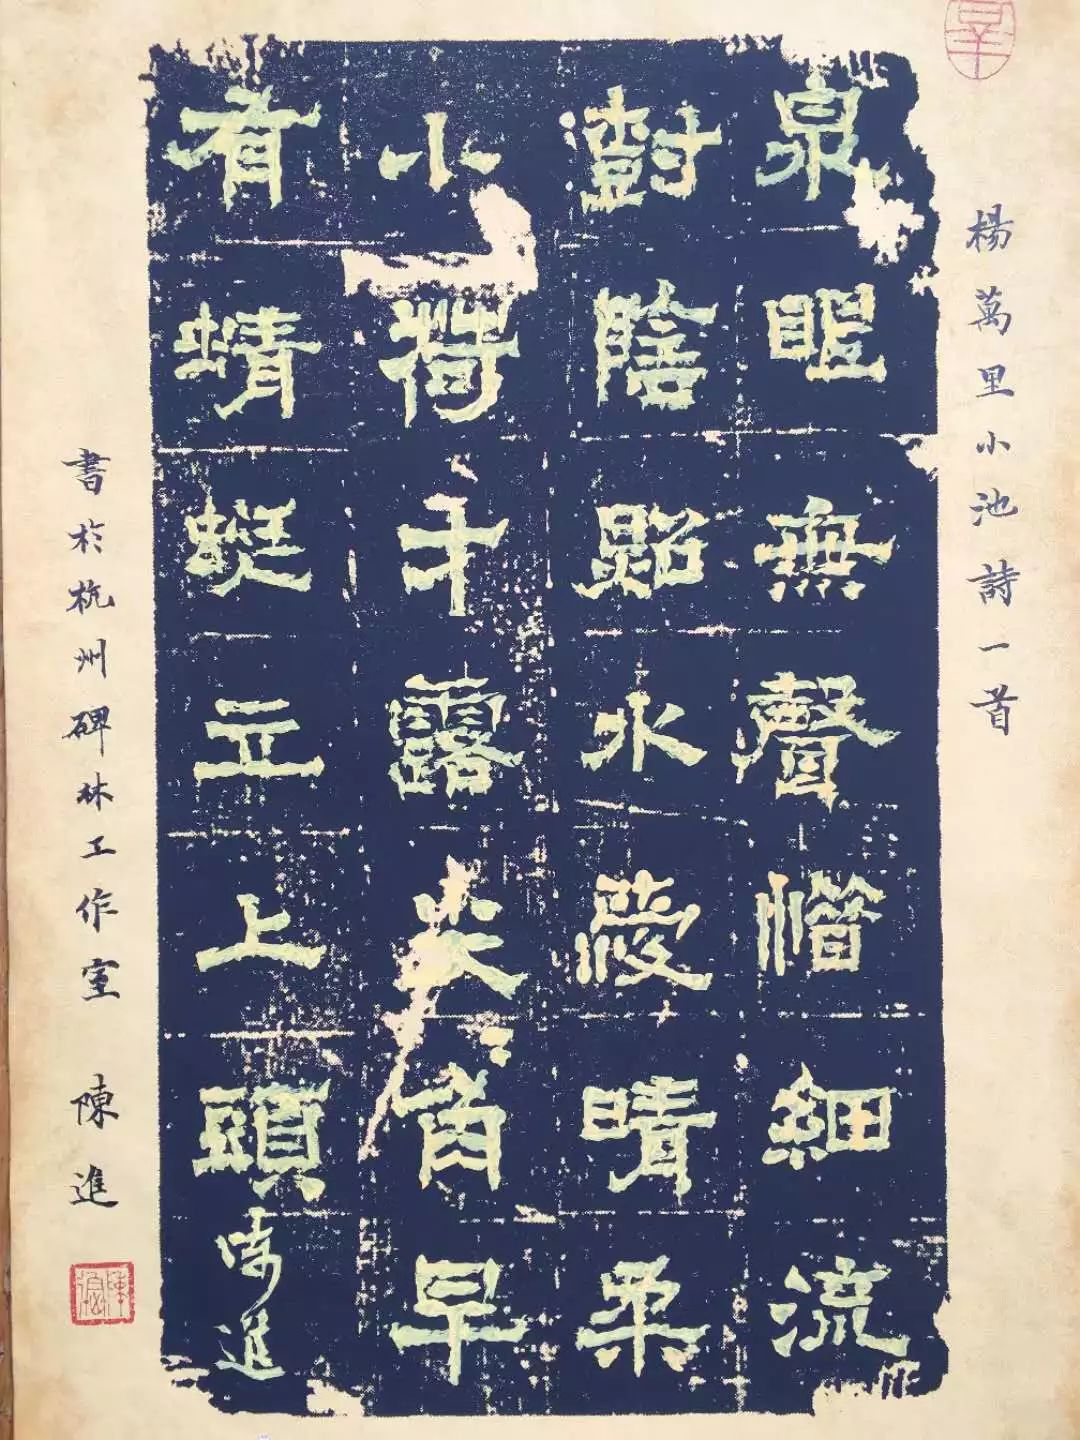 楊萬里小池詩一首
泉眼無聲惜細流
樹陰照水愛晴柔
小荷才露尖角早
有蜻蜓立上頭 陳進
書於杭州碑林工作室 陳進